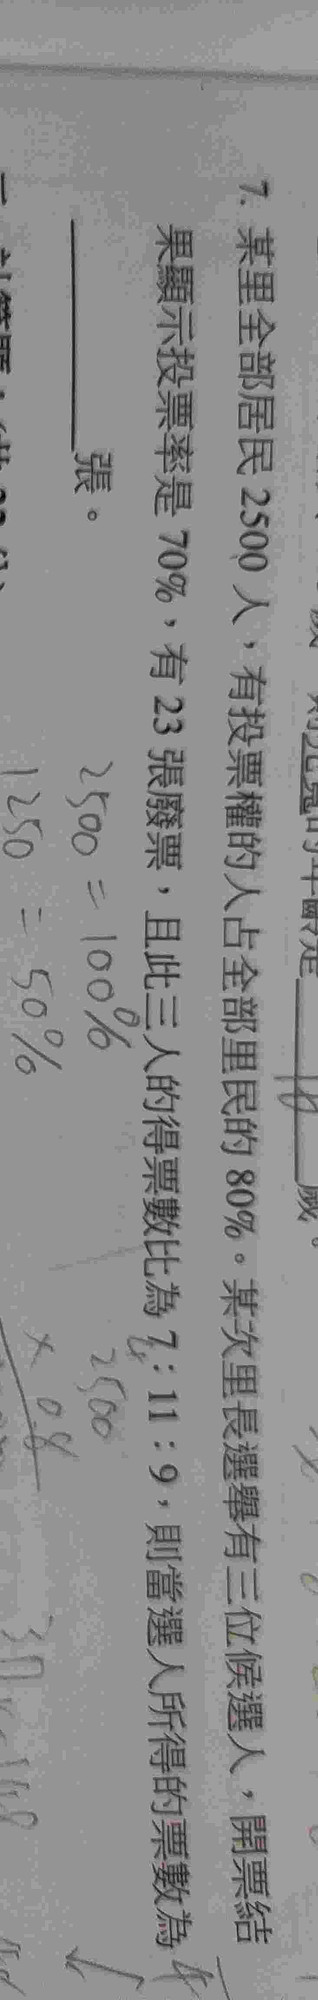 7. 某里全部居民 2500 人，有投票權的人占全部里民的 80%。某次里長選舉有三位候選人，開票結
果顯示投票率是 70%，有 23 張廢票，且此三人的得票數比為 7：11：9，則當選人所得的票數為
張。
2500 = 100%
1250 = 50%
2500
× 0.8